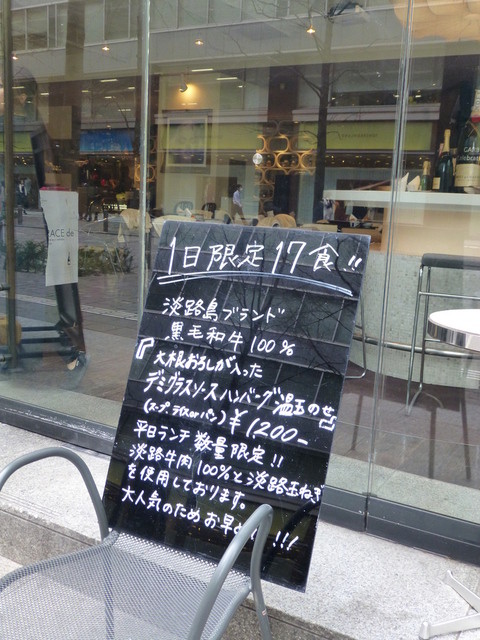 1日限定17食!!
淡路島ブランド
黒毛和牛100%
『大根おろしが入った
デミグラスソースハンバーグ温玉のせ』
(スープ ライスorパン) ¥1200-
平日ランチ数量限定!!
淡路牛肉100%と淡路玉ねぎ
を使用しております。
大人気のためお早め
!!!